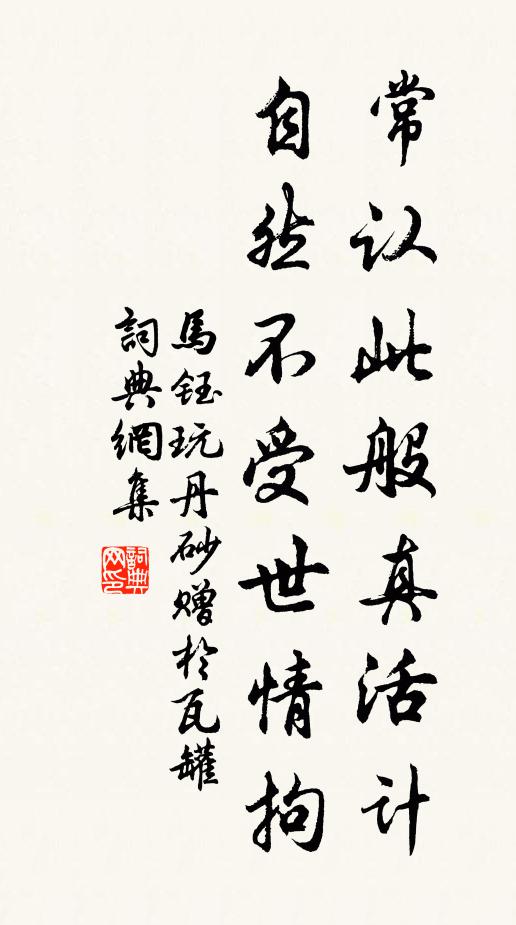 常认此般真活计
自然不受世情拘
馬鈺玩丹砂赠於瓦罐
詞典網集
詞典网印